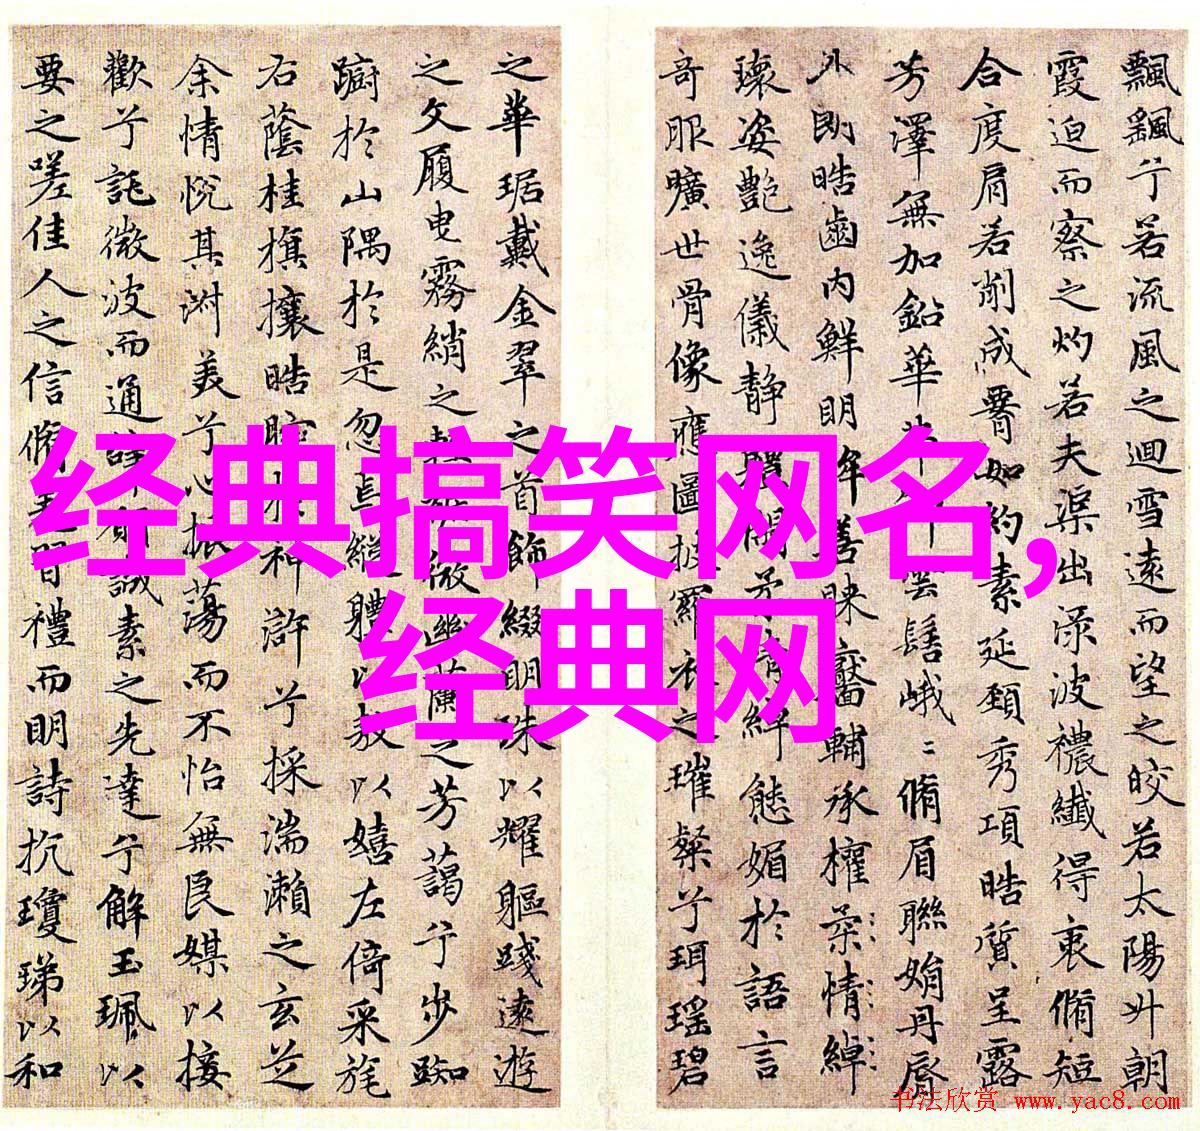 飄飖兮若流風之迴雪遠而望之皎若太陽升朝
霞迫而察之灼若夫渠出渌波襛纖得衷脩短
合度肩若削成要如約素延頸秀項皓質呈露
芳澤無加鉛華
髻峨〻脩眉聯娟丹脣
外朗皓齒内鮮明眸善睞靨輔承權
情綽
瓌姿艷逸儀静體閑
綽態媚於語言
奇服曠世骨像應圖披羅衣之璀粲兮珥瑶碧
之華琚戴金翠之首飾綴明珠以耀軀踐遠遊
之文履曳霧綃之輕
微幽蘭之芳藹兮步踟
躕於山隅於是忽焉縱體以敖以嬉左倚采旄
右蔭桂旗攘皓
神滸兮採湍瀨之玄芝
余情悅其淑美兮心振蕩而不怡無良媒以接
歡兮託微波而通辭
誠素之先達兮解玉珮以
要之嗟佳人之信脩
習禮而明詩抗瓊珶以和
经典搞笑网名,
经典网
书法欣赏 www.yac8.com